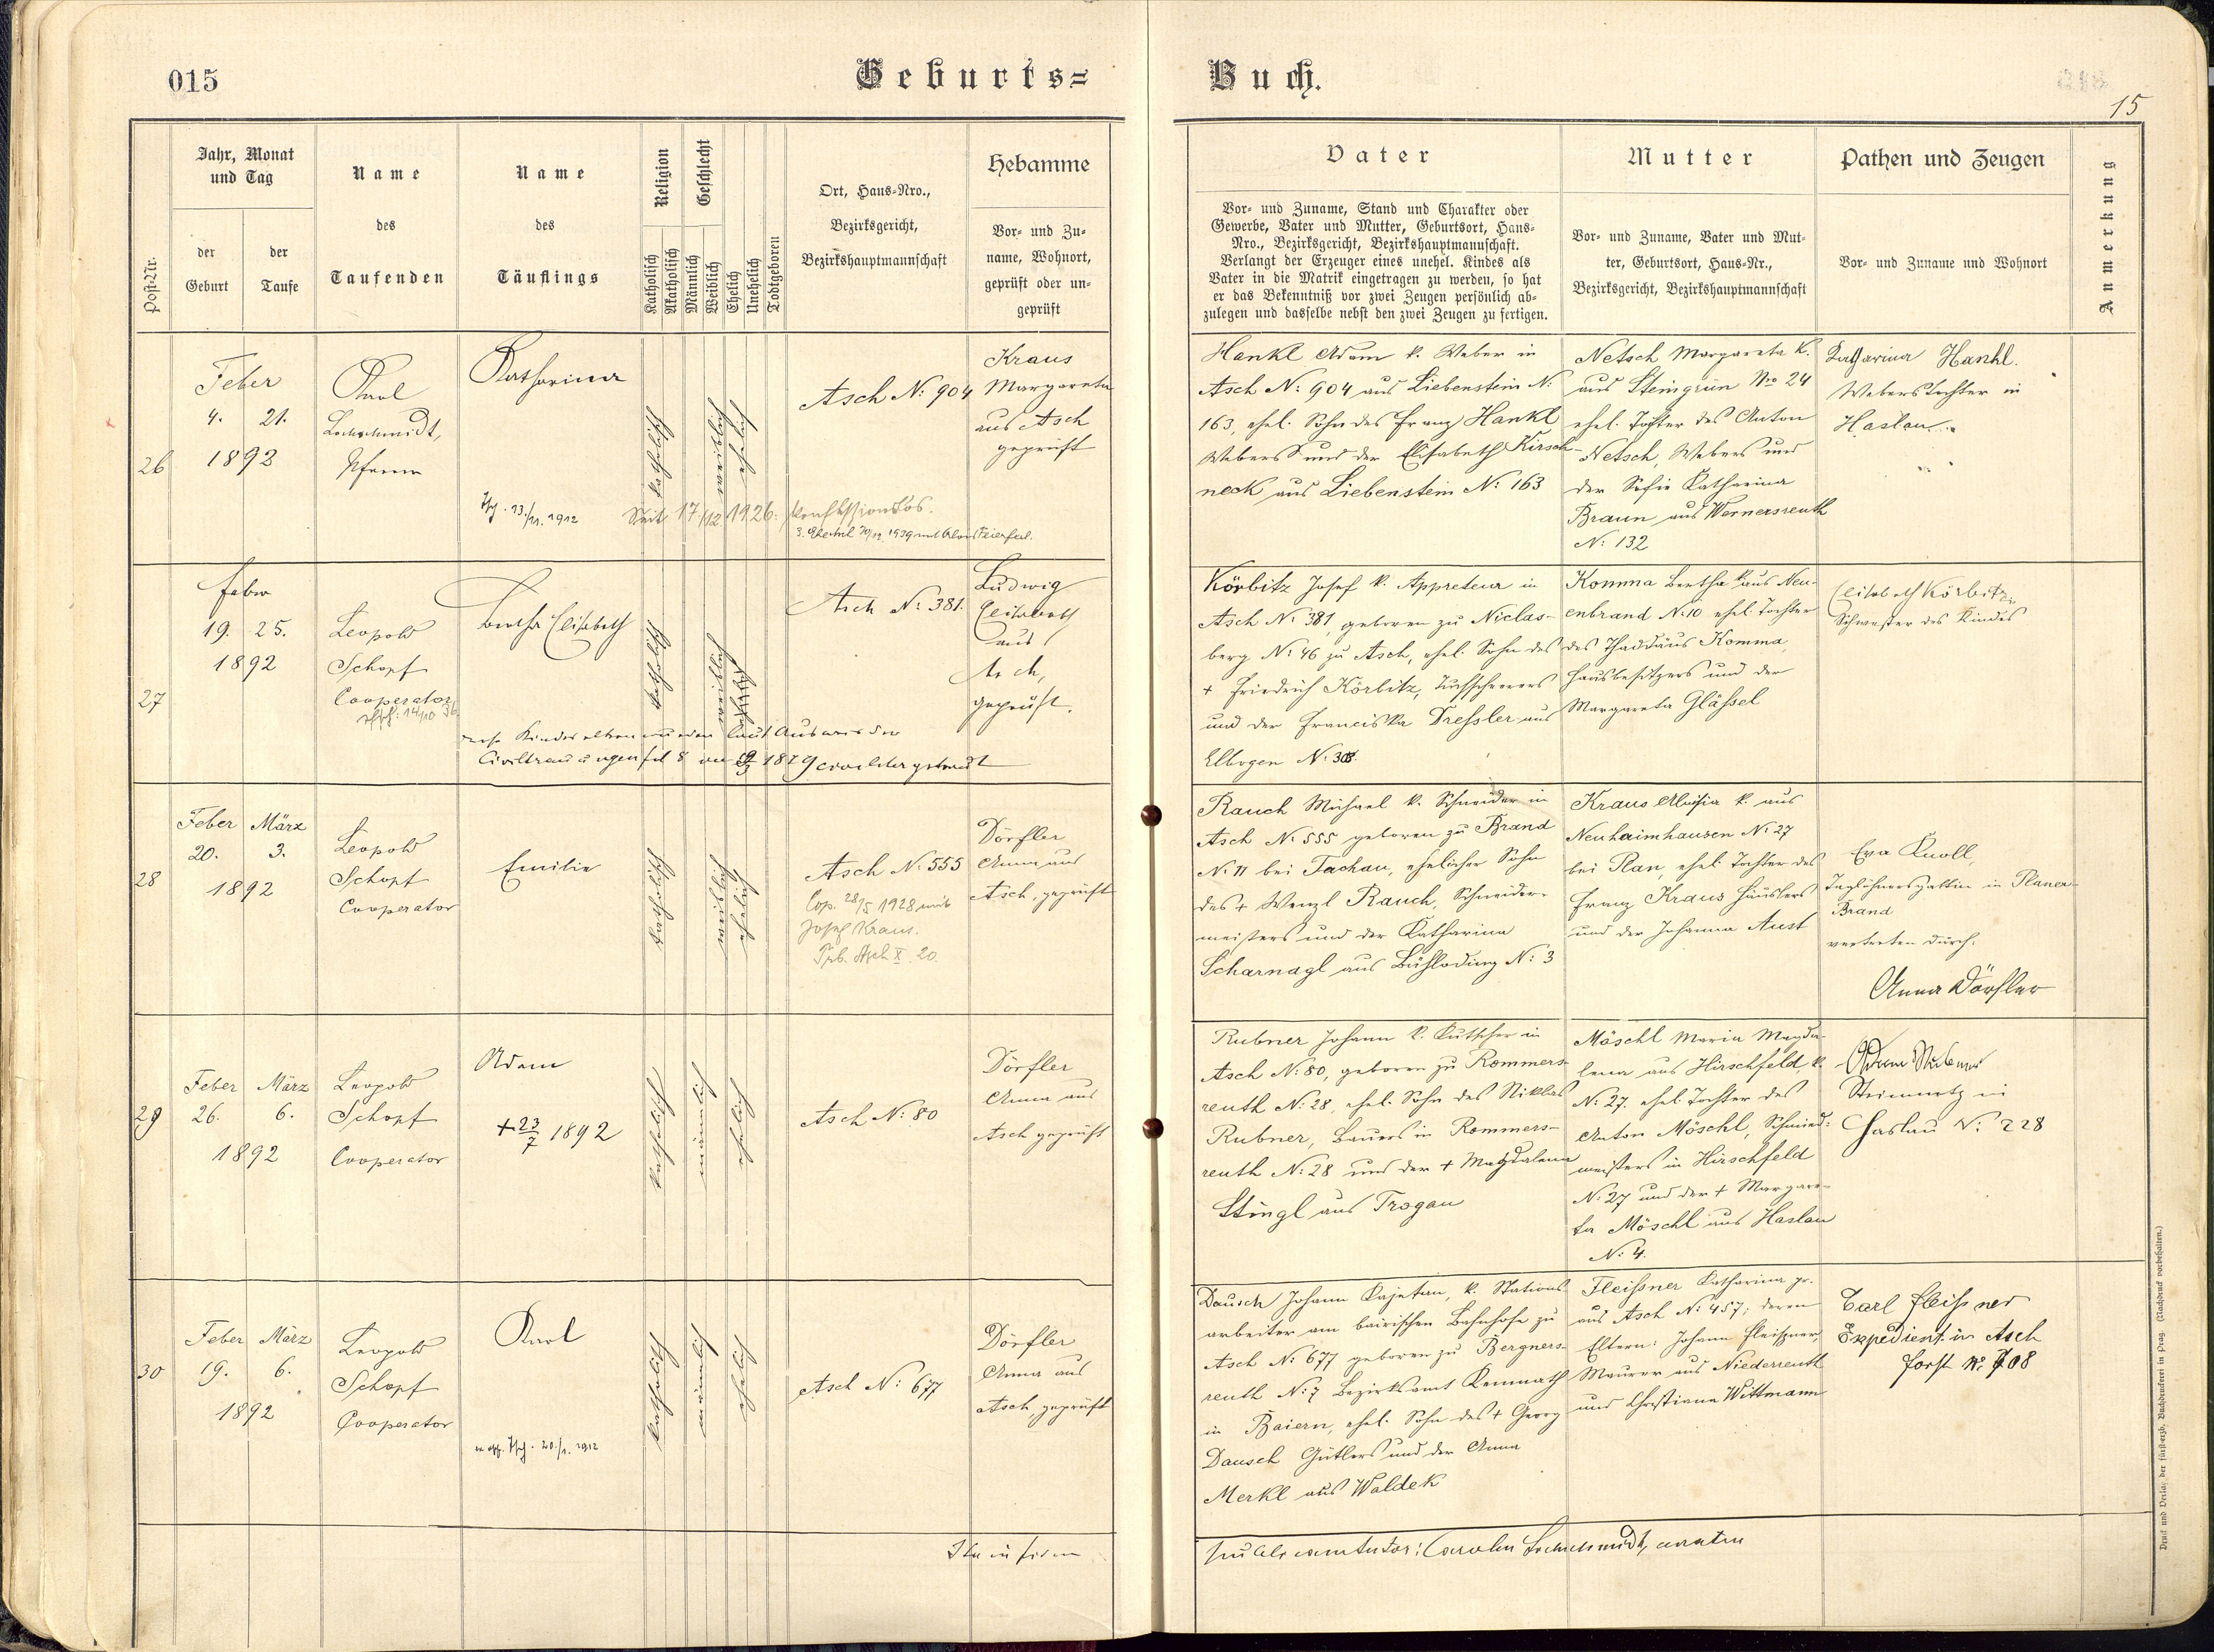 015
Geburts=
Buch.
15
Post-Nr.
Jahr, Monat
und Tag
der
Geburt
der
Taufe
Name
des
Taufenden
Name
des
Täuflings
Religion
Katholisch
Akatholisch
Geschlecht
Männlich
Weiblich
Ehelich
Unehelich
Todtgeboren
Ort, Haus-Nro.,
Bezirksgericht,
Bezirkshauptmannschaft
Hebamme
Vor- und Zu-
name, Wohnort,
geprüft oder un-
geprüft
Vater
Vor- und Zuname, Stand und Charakter oder
Gewerbe, Vater und Mutter, Geburtsort, Haus-
Nro., Bezirksgericht, Bezirkshauptmannschaft.
Verlangt der Erzeuger eines unehel. Kindes als
Vater in die Matrik eingetragen zu werden, so hat
er das Bekenntniß vor zwei Zeugen persönlich ab-
zulegen und dasselbe nebst den zwei Zeugen zu fertigen.
Mutter
Vor- und Zuname, Vater und Mut-
ter, Geburtsort, Haus-Nr.,
Bezirksgericht, Bezirkshauptmannschaft
Pathen und Zeugen
Vor- und Zuname und Wohnort
Anmerkung
26
Feber
4. 21.
1892
Karl
Lochschmidt,
Pfarrer
Katharina
13./11. 1912
katholisch
weiblich
ehelich
Seit 17/12 1926. konfessionslos.
Asch N: 904
Kraus
Margareta
aus Asch
geprüft
Hankl Adam k. Weber in
Asch N: 904 aus Liebenstein N:
163, ehel. Sohn des Franz Hankl
Webers und der Elisabeth Kirsch-
neck aus Liebenstein N: 163
Netsch Margareta k.
aus Steingrün Nro 24
ehel. Tochter des Anton
Netsch, Webers und
der Sofie Katharina
Braun aus Wernersreuth
N: 132
Katharina Hankl.
Weberstochter in
Haslau
27
Feber
19. 25.
1892
Leopold
Schopf
Cooperator
14/10 36.
Bertha Elisabeth
katholisch
weiblich
ehelich
Asch N: 381.
Ludwig
Elisabeth
aus
Asch,
geprüft.
Körbitz Josef k. Appreteur in
Asch N: 381, geboren zu Niclas-
berg N: 46 zu Asch, ehel. Sohn des
+ Friedrich Körbitz, Tuchscherers
und der Franciska Dreßler aus
Elbogen N:
Komma Bertha k. aus Neu-
enbrand N: 10 ehel. Tochter
des Thaddäus Komma,
Hausbesitzers und der
Margareta Gläßel
Elisabeth Körbitz,
Schwester des Kindes
28
Feber März
20. 3.
1892
Leopold
Schopf
Cooperator
Emilie
katholisch
weiblich
ehelich
Asch N: 555
Cop. 28/5 1928 mit
Josef Kraus.
Trb. Asch X. 20.
Dörfler
Anna aus
Asch, geprüft
Rauch Michael k. Schneider in
Asch N: 555 geboren zu Brand
N: 11 bei Tachau, ehelicher Sohn
des + Wenzl Rauch, Schneider-
meisters und der Katharina
Scharnagl aus N: 3
Kraus Aloisia k. aus
Neuhaimhausen N: 27
bei Plan, ehel. Tochter des
Franz Kraus Häuslers
und der Johanna Aust
Eva Knoll,
Taglöhnersgattin in Planer-
Brand
vertreten durch:
Anna Dörfler
29
Feber März
26. 6.
1892
Leopold
Schopf
Cooperator
Adam
+ 23/7 1892
katholisch
männlich
ehelich
Asch N: 80
Dörfler
Anna aus
Asch geprüft
Rubner Johann k. Kutscher in
Asch N: 80, geboren zu Rommers-
reuth N: 28, ehel. Sohn des Niklas
Rubner, Bauers in Rommers-
reuth N: 28 und der + Magdalena
Stingl aus Trogau
Möschl Maria Magda-
lena aus Hirschfeld, k.
N: 27. ehel. Tochter des
Anton Möschl, Schmied-
meisters in Hirschfeld
N: 27 und der + Margare-
ta Möschl aus Haslau
N: 4.
Adam Rubner
Steinmetz in
Haslau N: 228
30
Feber März
19. 6.
1892
Leopold
Schopf
Cooperator
Karl
20./1. 1912
katholisch
männlich
ehelich
Asch N: 677
Dörfler
Anna aus
Asch, geprüft
Dausch Johann Kajetan, k. Stations-
arbeiter am bairischen Bahnhofe zu
Asch N: 677 geboren zu Bergners-
reuth N: 7 Bezirksamt Kemnath
in Baiern, ehel. Sohn des + Georg
Dausch Gütlers und der Anna
Merkl aus Waldek
Fleißner Katharina pr.
aus Asch N: 457; deren
Eltern: Johann Fleißner,
Maurer aus Niederreuth
und Christiana Wittmann
Carl Fleißner
Expedient in Asch
Forst N: 708
Druck und Verlag der fürsterzb. Buchdruckerei in Prag. (Nachdruck vorbehalten.)